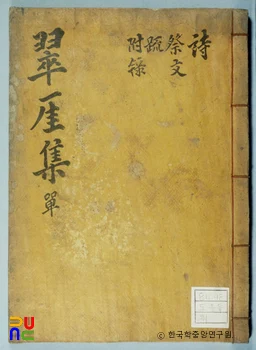 詩
祭文
疏
附錄
翠厓集 單
© 한국학중앙연구원